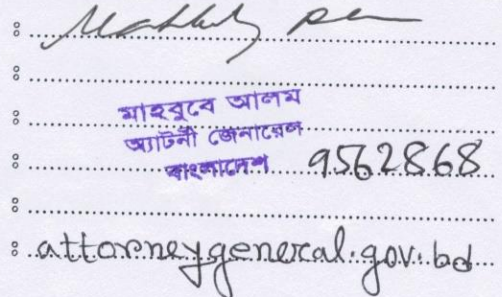 :
:
: মাহবুবে আলম
অ্যাটর্নী জেনারেল
: বাংলাদেশ 9562868
:
: attorneygeneral.gov.bd